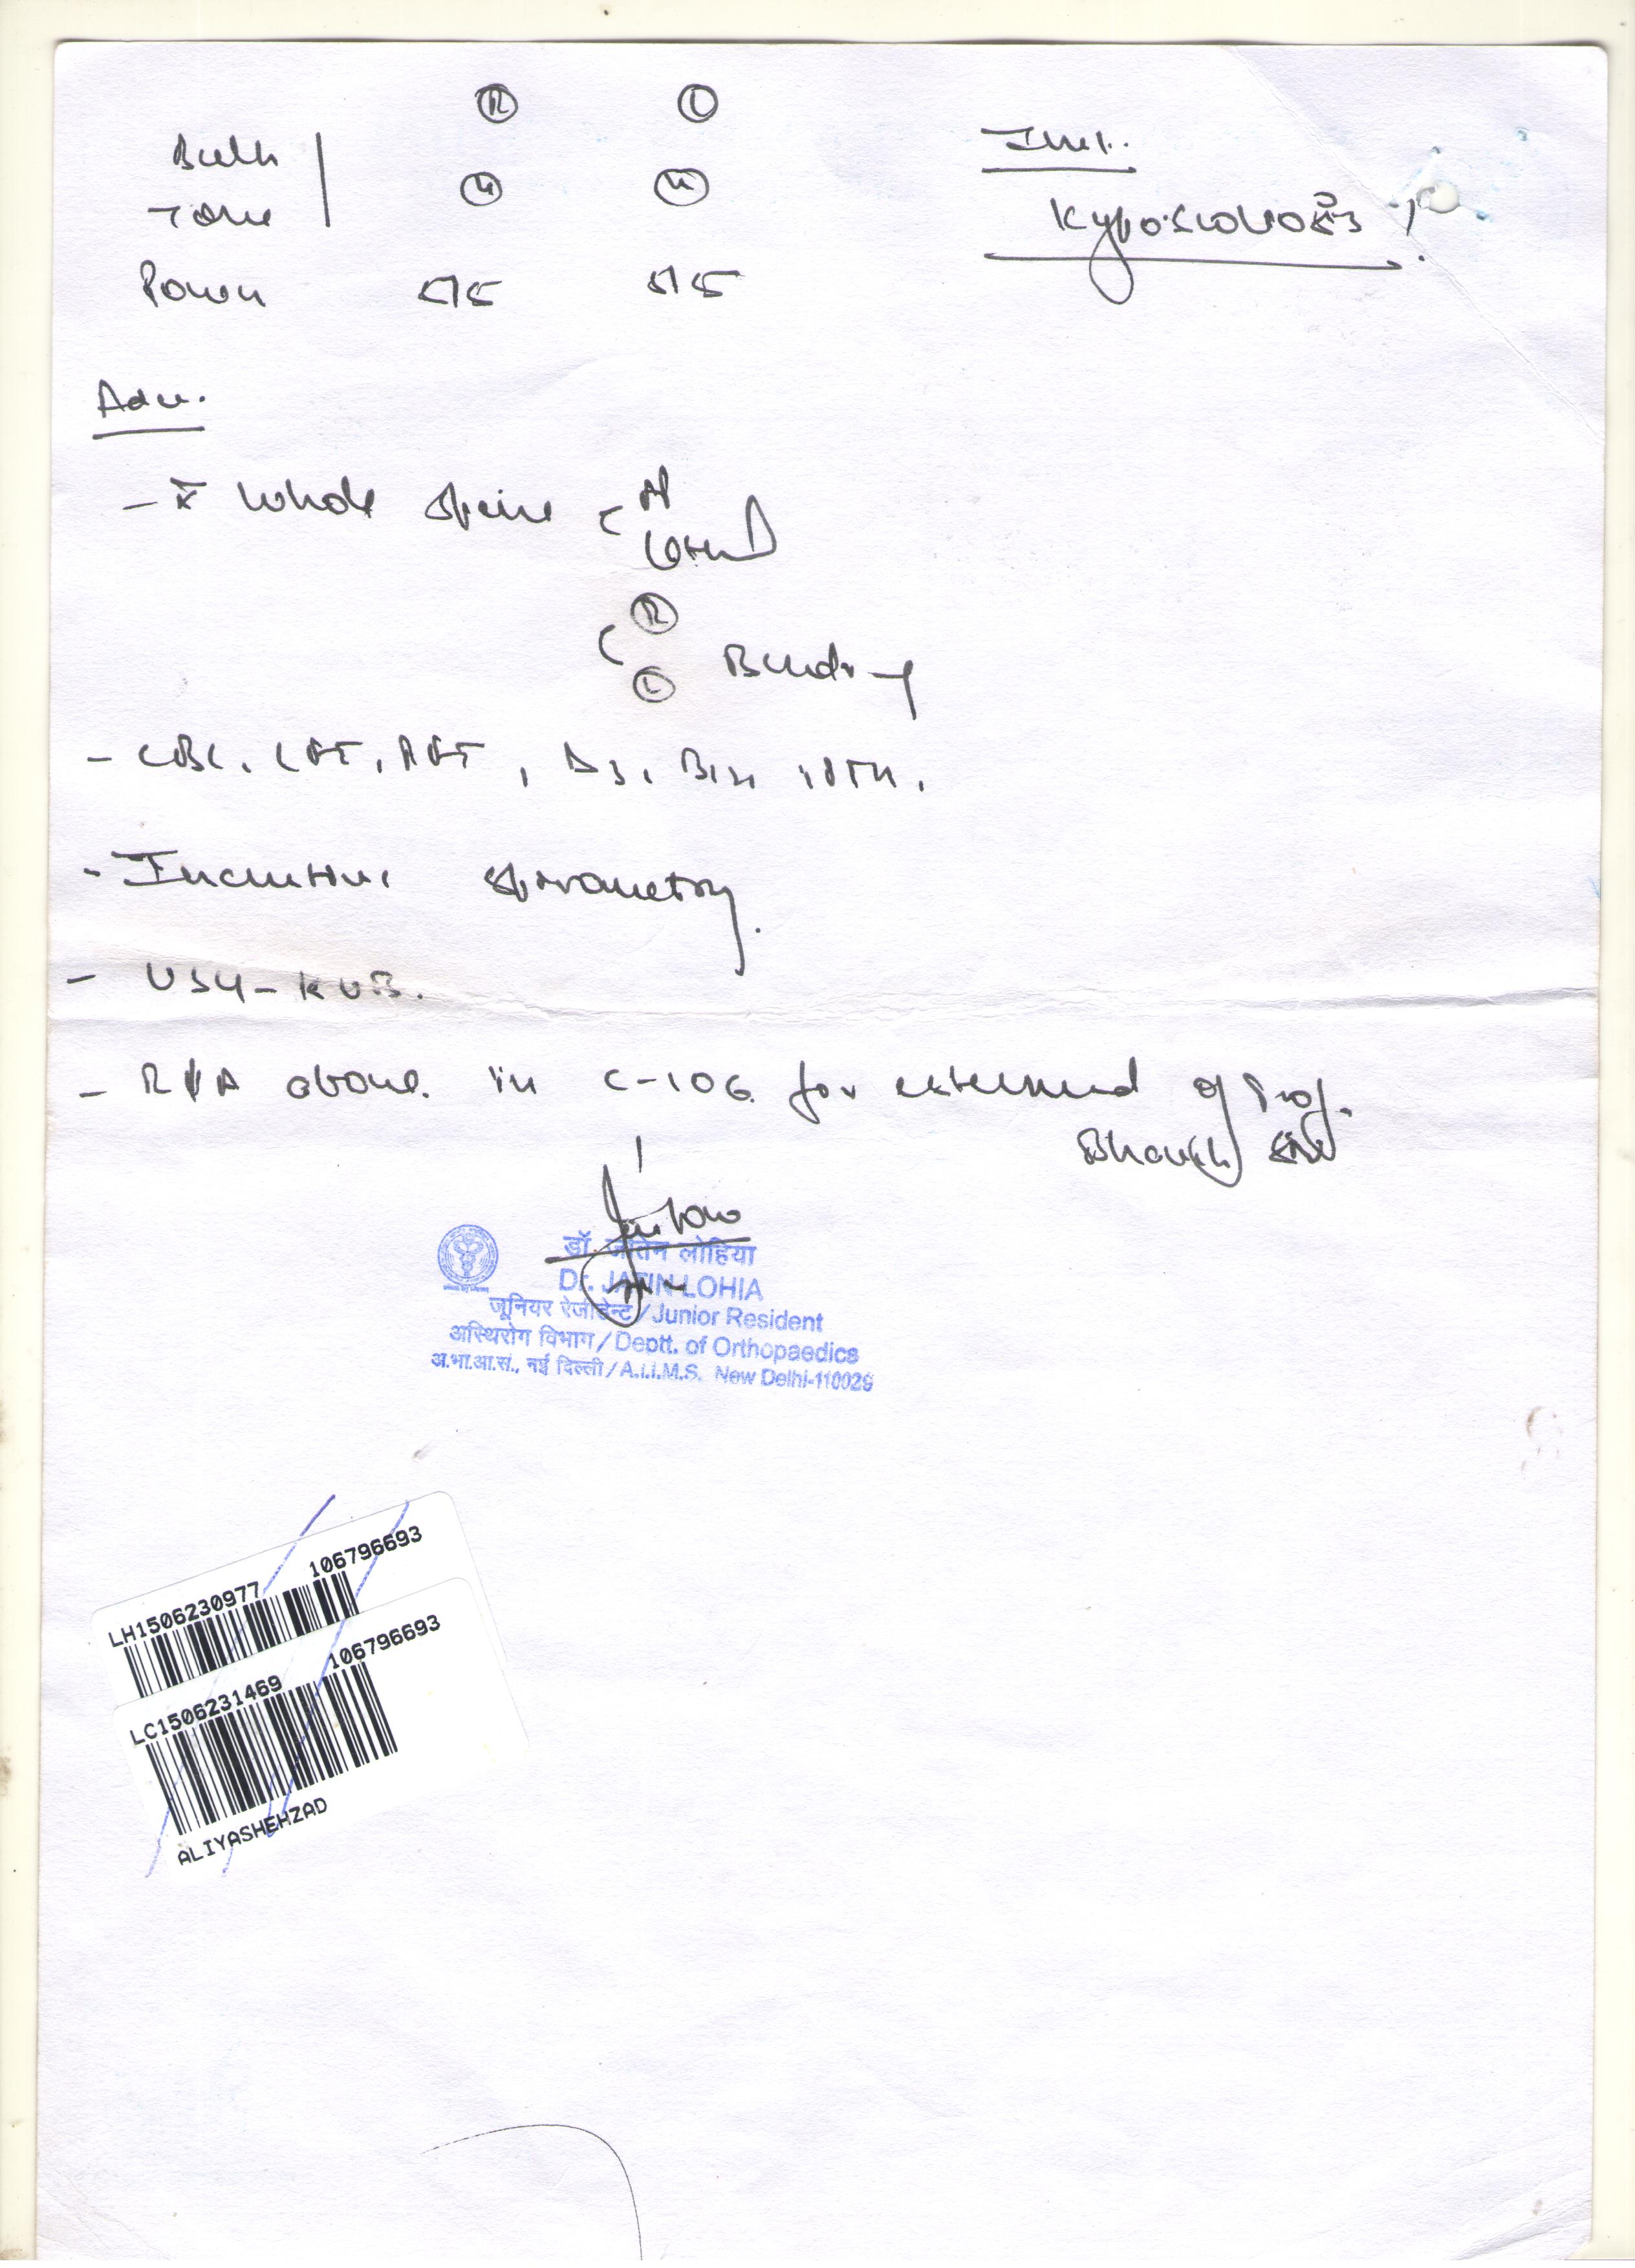 Ⓡ Ⓛ
Bulk
Tone Ⓝ Ⓝ
Power 5/5 5/5
Imp.
Kyphoscoliosis
Adv.
- X Whole Spine c AP
Lateral
c Ⓡ
Ⓛ Bending
- CBC, LFT, RFT, D3, B12 iPTH.
- Incentive spirometry.
- USG-KUB.
- R/A above in C-106 for of Prof.
Bhavuk Sir
डॉ. जतिन लोहिया
Dr. JATIN LOHIA
जूनियर रेजीडेन्ट/Junior Resident
अस्थिरोग विभाग/Deptt. of Orthopaedics
अ.भा.आ.सं., नई दिल्ली/A.I.I.M.S. New Delhi-110029
LH1506230977 106796693
LC1506231469 106796693
ALIYASHEHZAD